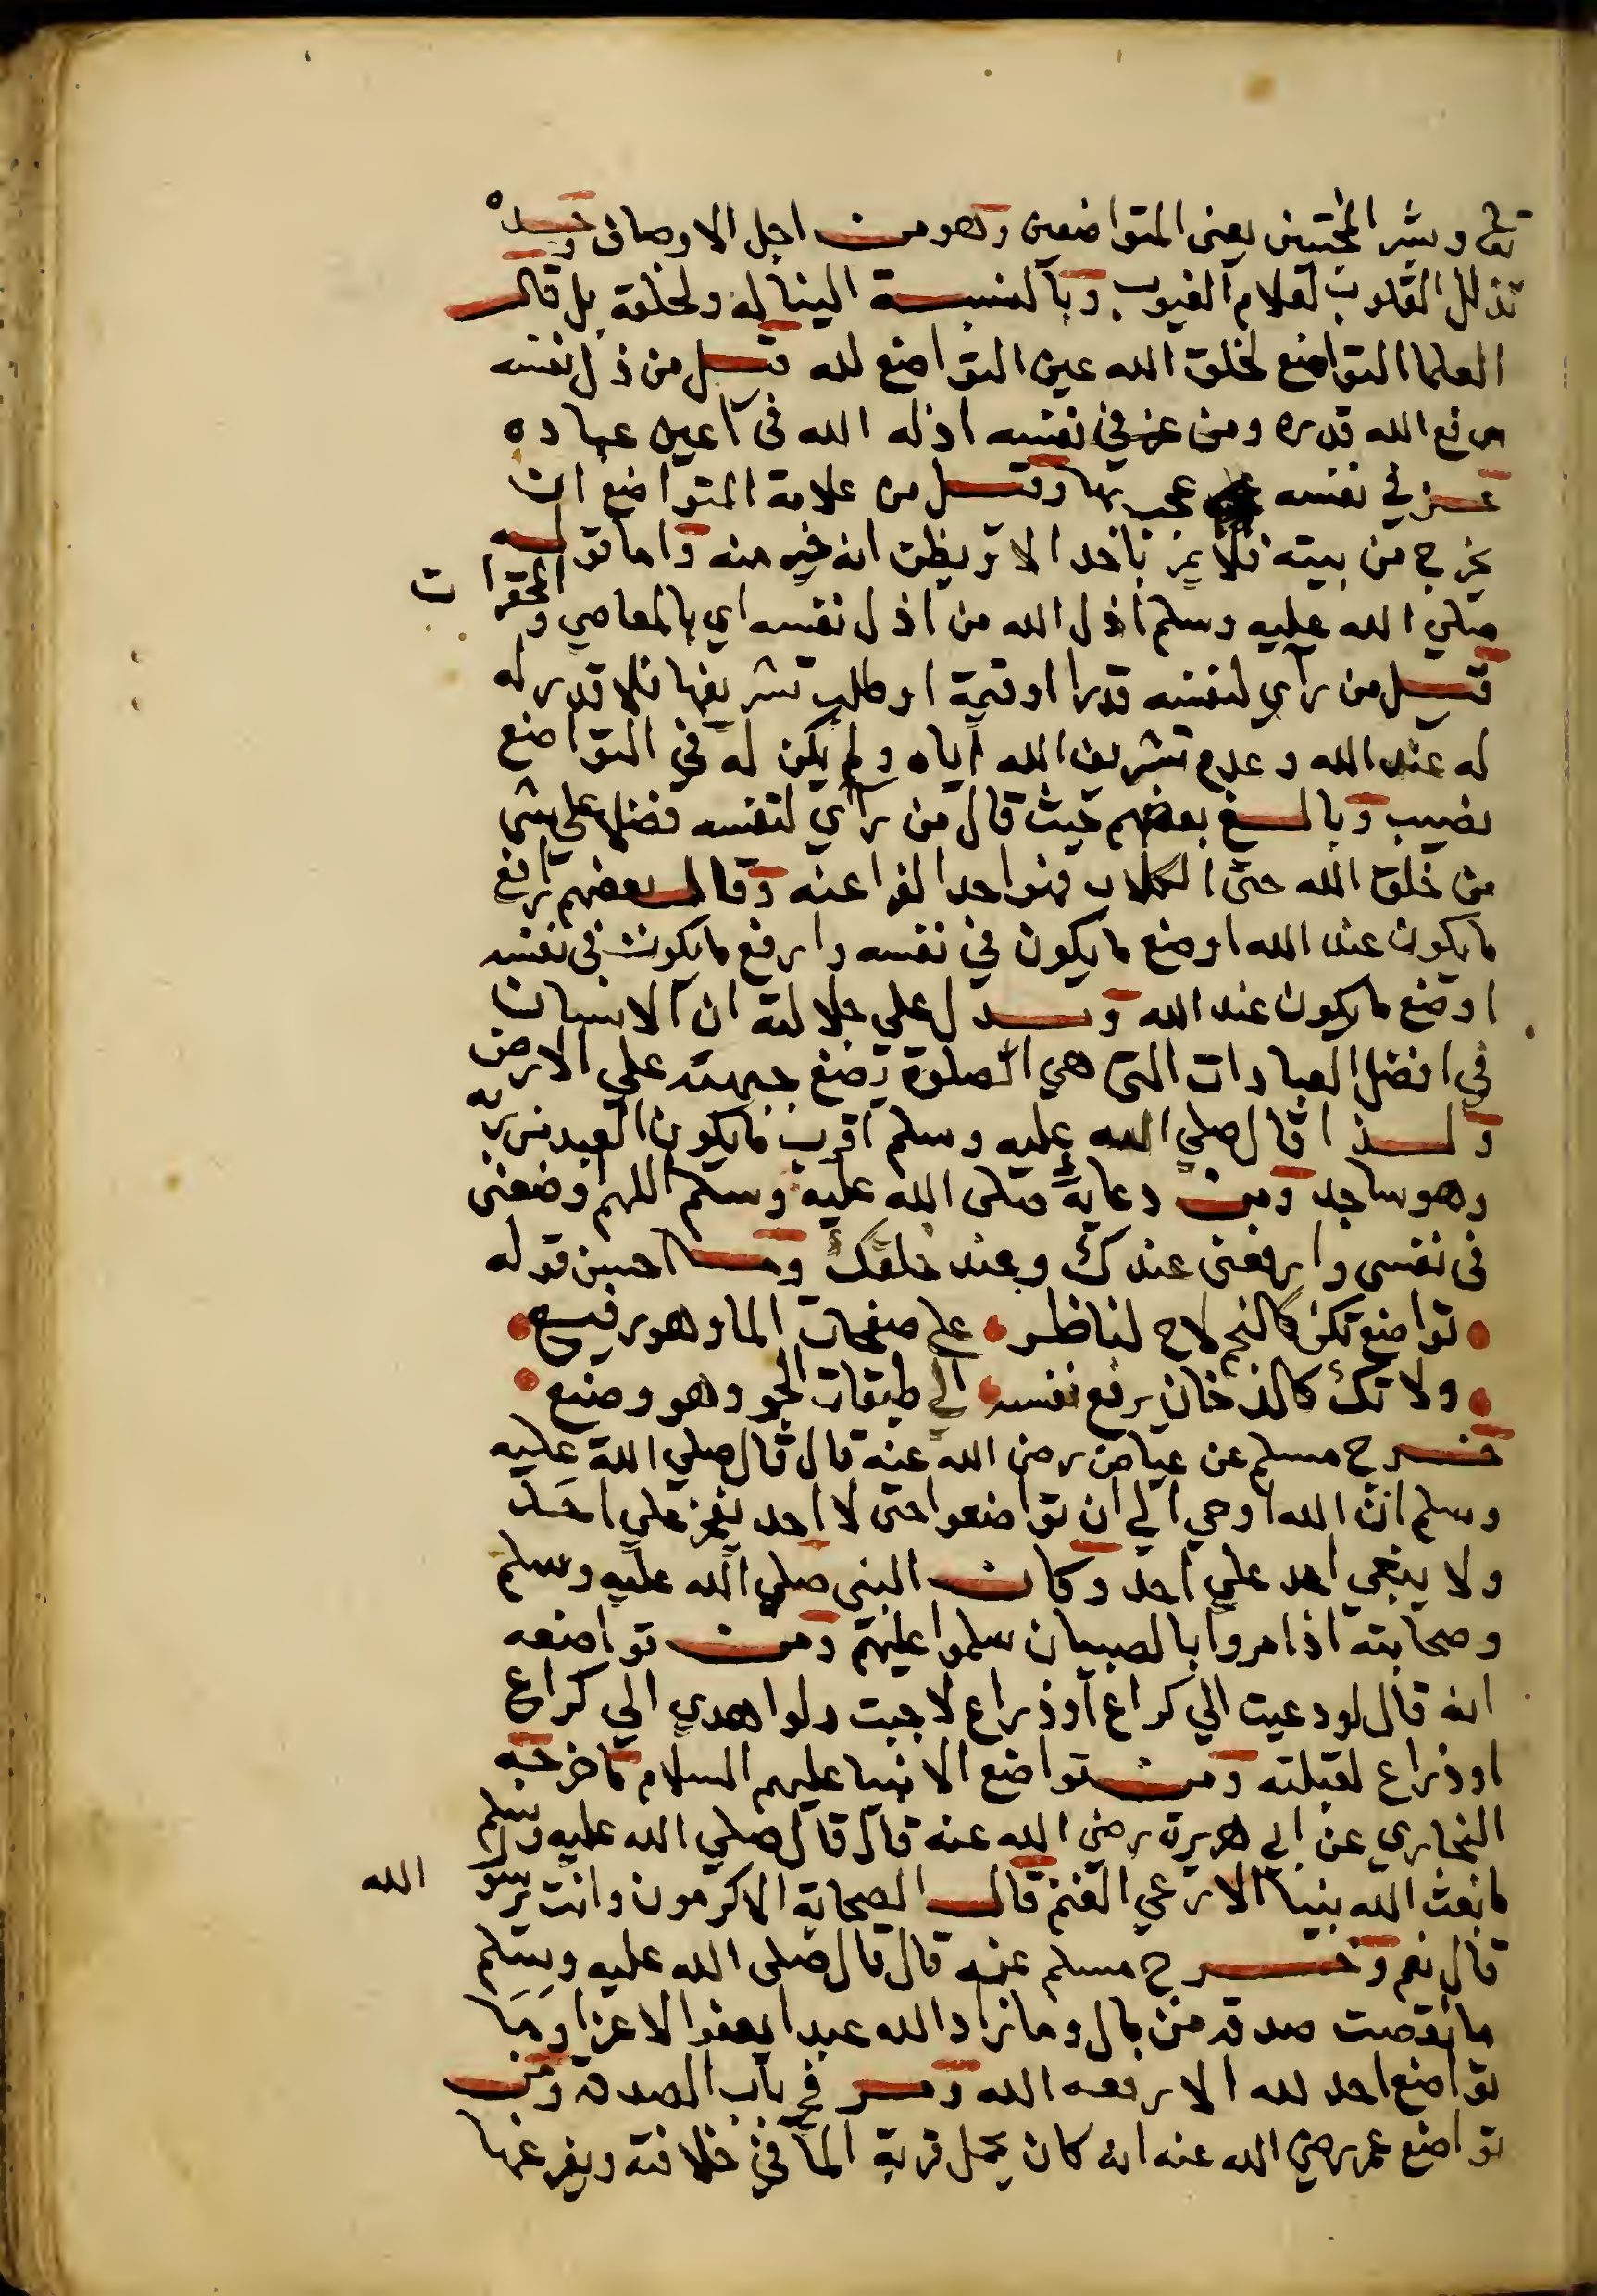 تعالى وبشر المخبتين يعنى المتواضعين وهو من اجل الاوصاف وحده
تذلل القلوب لعلام الغيوب وبالنسبة الينا له ولخلقه بل قال
العلما التواضع لخلق الله عين التواضع لله قيل من ذل نفسه
رفع الله قدره ومن عز في نفسه اذله الله فى اعين عباده
عز في نفسه عجب بها وقيل من علامة المتواضع ان
يخرج من بيته فلا يمر باحد الا ويظن انه خير منه واما قوله
صلي الله عليه وسلم اذل الله من اذل نفسه اي بالمعاصي والمحقرات
قيل من رآي لنفسه قدرا او قيمة او طلب تشريفها فلا قدر له
له عند الله وعدم تشريف الله اياه ولم يكن له في التواضع
نصيب وبالغ بعضهم حيث قال من رآي لنفسه فضلا على شي
من خلق الله حتى الكلاب فهو احد الفراعنه وقال بعضهم ارفع
ما يكون عند الله اوضع ما يكون في نفسه وارفع ما يكون فى نفسه
اوضع ما يكون عند الله ويدل علي جلالته ان الانسان
في افضل العبادات التى هي الصلوة يضع جبهته علي الارض
ولذا قال صلي الله عليه وسلم اقرب ما يكون العبد من ربه
وهو ساجد ومن دعايه صلى الله عليه وسلم اللهم وضعنى
فى نفسى وارفعنى عندك وعند خلقك وما احسن قوله
تواضع تكن كالنجم لاح لناظر على صفحات الما وهو رفيع
ولا تك كالدخان يرفع نفسه الي طبقات الجو وهو وضيع
خرج مسلم عن عياض رضى الله عنه قال قال صلي الله عليه
وسلم ان الله اوحي الي ان تواضعوا حتى لا احد يفخر علي احد
ولا يبغي احد علي احد وكان النبى صلي الله عليه وسلم
وصحابته اذا مروا بالصبيان سلموا عليهم ومن تواضعه
انه قال لو دعيت الي كراع او ذراع لاجبت ولو اهدي الي كراع
او ذراع لقبلته ومن تواضع الانبيا عليهم السلام ما خرجه
البخاري عن ابي هريرة رضي الله عنه قال قال صلي الله عليه وسلم
ما بعث الله نبيا الا رعي الغنم قال الصحابة الاكرمون وانت يرسول الله
قال نعم وخرج مسلم عنه قال قال صلى الله عليه وسلم
ما نقصت صدقة من مال وما زاد الله عبدا بعفو الا عزا وما
تواضع احد لله الا رفعه الله ومر في باب الصدقة ومن
تواضع عمر رضي الله عنه انه كان يحمل قربة الما في خلافته ويفرغها